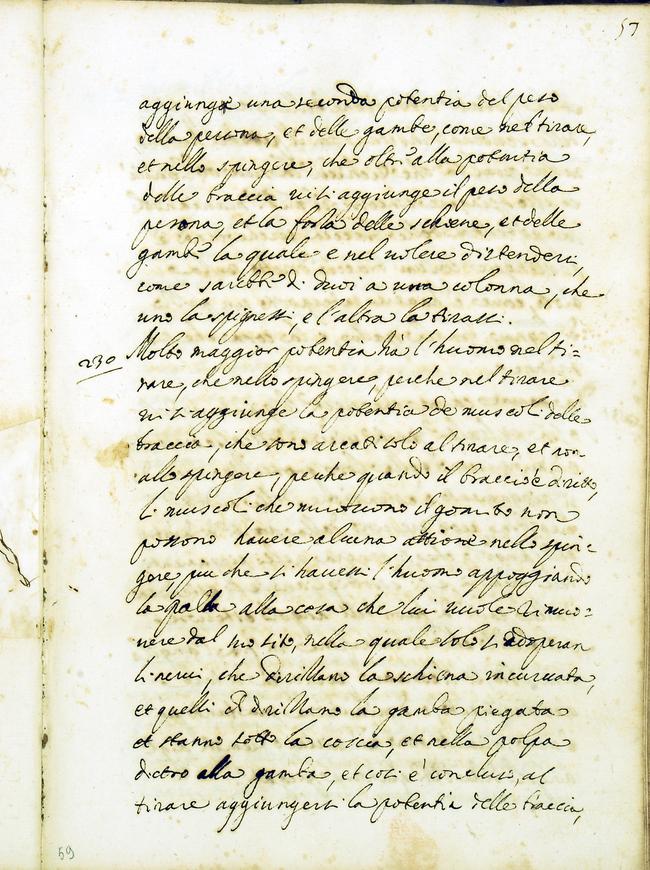 57
aggiunge una seconda potentia del peso
della persona, et delle gambe, come nel tirare,
et nello spingere, che oltr' alla potentia
delle braccia vi si aggiunge il peso della
persona, et la forza delle schiene, et delle
gambe la quale e nel volere distendersi,
come sarebbe di duoi a una colonna, che
uno la spignessi, e l'altra la tirassi.
230 Molto maggior potentia hà l'huomo nel ti=
rare, che nello spingere, perche nel tirare
vi si aggiunge la potentia de muscoli delle
braccia, che sono creati solo al tirare, et non
allo spingere, perche quando il braccio è diritto,
li muscoli che muovono il gomito non
possono havere alcuna attione nello spin=
gere, piu che si havessi l'huomo appoggiando
la spalla alla cosa che lui vuole rimuo=
vere dal suo sito, nella quale solo s'adoperan
li nervi, che dirillano la schiena incurvata,
et quelli che dirillano la gamba piegata
et stanno sotto la coscia, et nella polpa
dietro alla gamba, et così è concluso, al
tirare aggiungersi la potentia delle braccia,
59